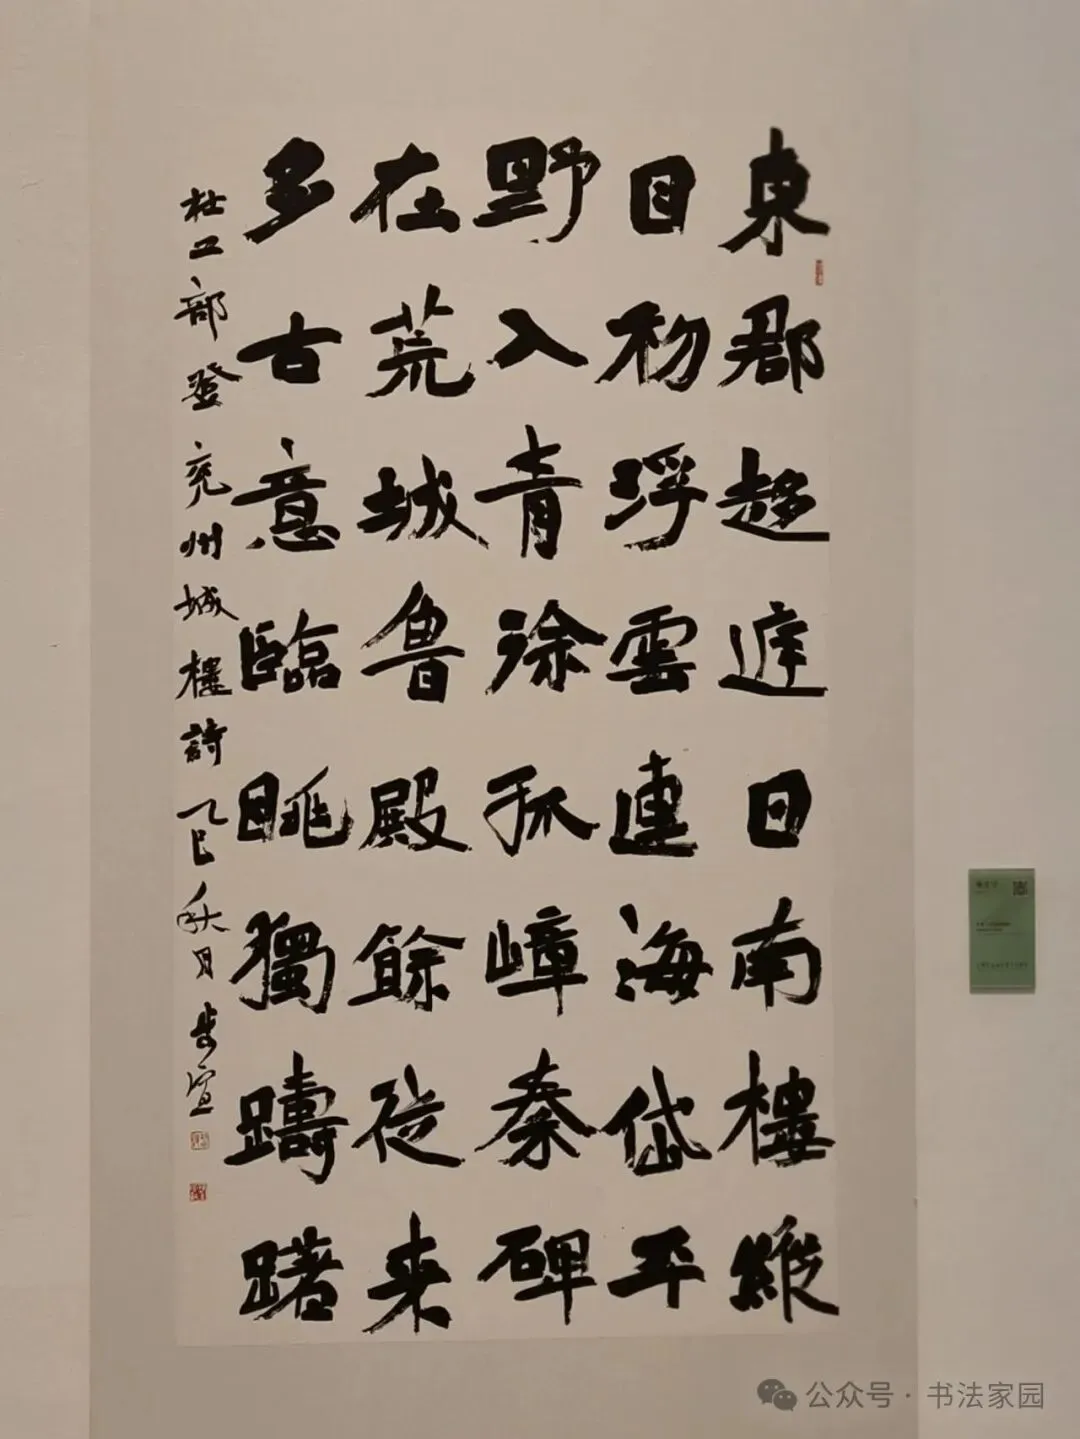 東郡趍庭日南樓縱
目初浮雲連海岱平
野入青徐孤嶂秦碑
在荒城魯殿餘從来
多古意臨眺獨躊躇
杜工部登兖州城樓詩乙巳秋月步宣
公众号 · 书法家园